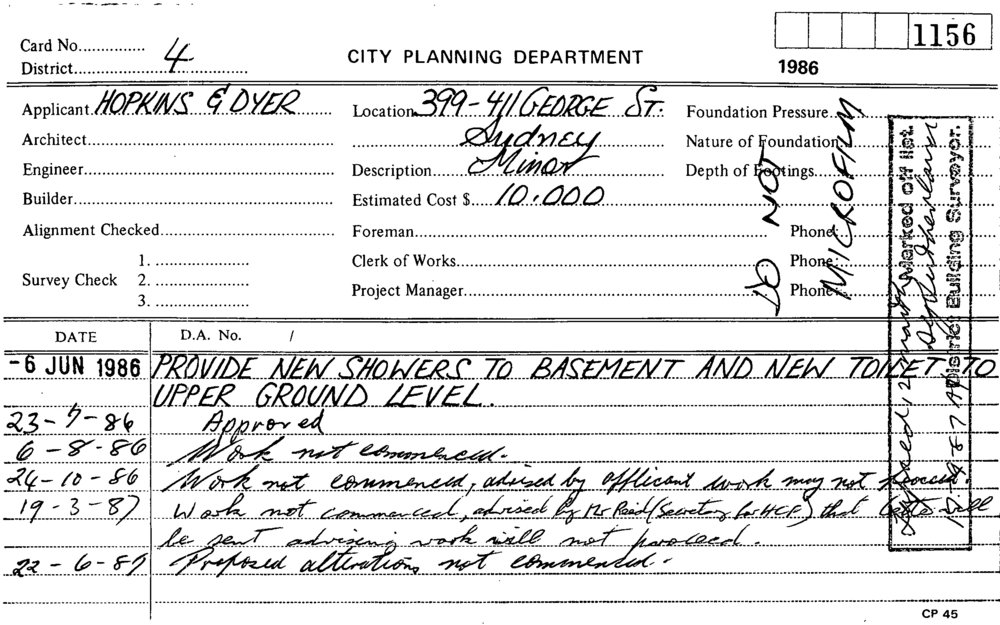 1156
Card No. 4
District
CITY PLANNING DEPARTMENT
1986
Applicant HOPKINS & DYER
Location 399-411 GEORGE ST.
Foundation Pressure
Architect
Sydney
Nature of Foundation
Engineer
Description Minor
Depth of Footings
Builder
Estimated Cost $ 10.000
Alignment Checked
Foreman
Phone
1.
Clerk of Works
Phone
Survey Check 2.
Project Manager
Phone
3.
DO NOT
MICROFILM
Marked off list.
District Building Surveyor.
Lapsed 12 months
17-9-87
DATE
D.A. No. /
-6 JUN 1986 PROVIDE NEW SHOWERS TO BASEMENT AND NEW TOILET TO
UPPER GROUND LEVEL.
23-7-86 Approved
6-8-86 Work not commenced.
24-10-86 Work not commenced, advised by applicant work may not proceed.
19-3-87 Work not commenced, advised by Mr Reid (Secretary for HCF) that letter will
be sent advising work will not proceed.
22-6-87 Proposed alterations not commenced.
CP 45